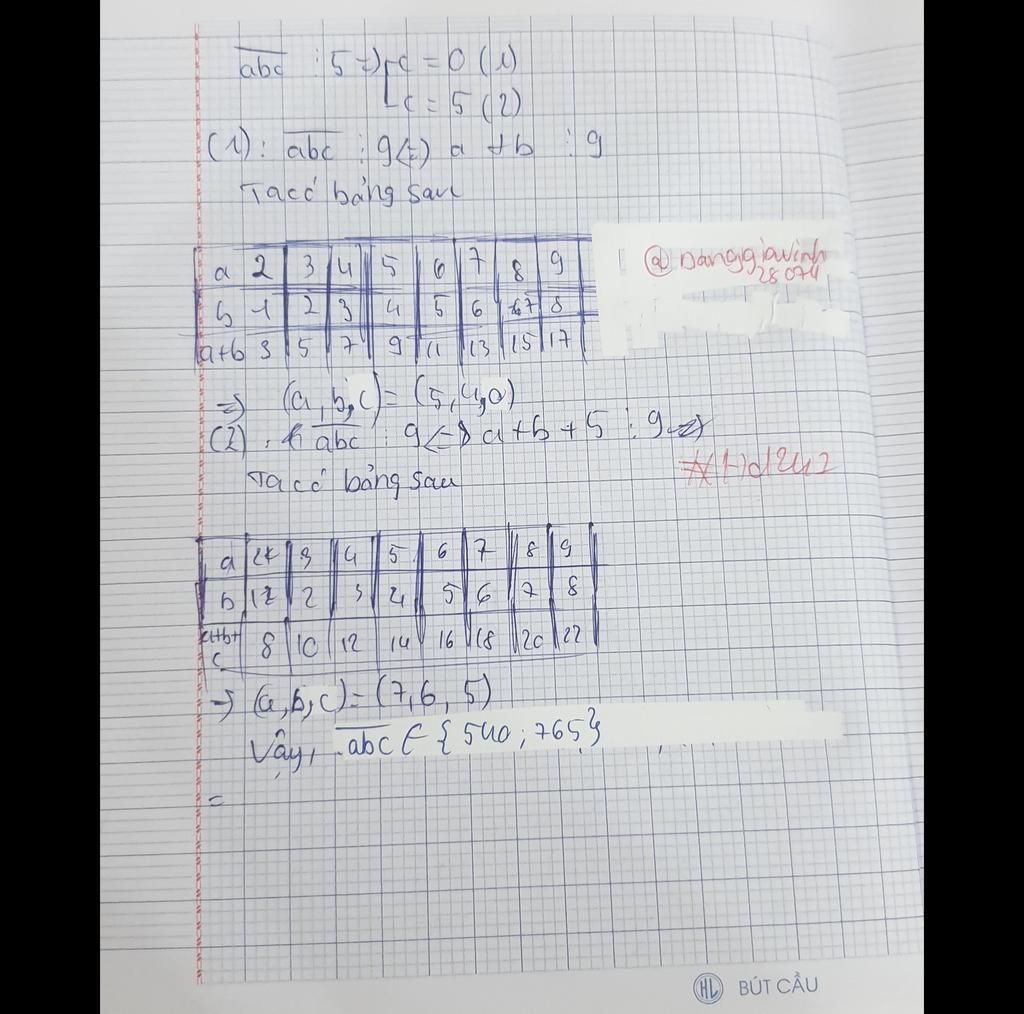 abc ⋮ 5 => [ c = 0 (1)
c = 5 (2)
(1): abc ⋮ 9 <=> a + b ⋮ 9
Ta có bảng sau
a 2 3 4 5 6 7 8 9
b 1 2 3 4 5 6 7 8
a+b 3 5 7 9 11 13 15 17
@Danggiavinh
28074
=> (a,b,c) = (5,4,0)
(2): abc ⋮ 9 <=> a+b+5 ⋮ 9
Ta có bảng sau
a 2 3 4 5 6 7 8 9
b 1 2 3 4 5 6 7 8
a+b+
c 8 10 12 14 16 18 20 22
=> (a,b,c) = (7,6,5)
Vậy, abc ∈ {540; 765}
=
HL BÚT CẦU